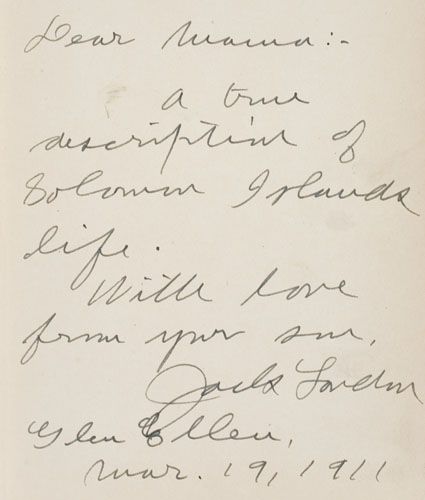 Dear Mama:-
A true
description of
Solomon Islands
life.
With love
from your son,
Jack London
Glen Ellen,
Mar. 19, 1911